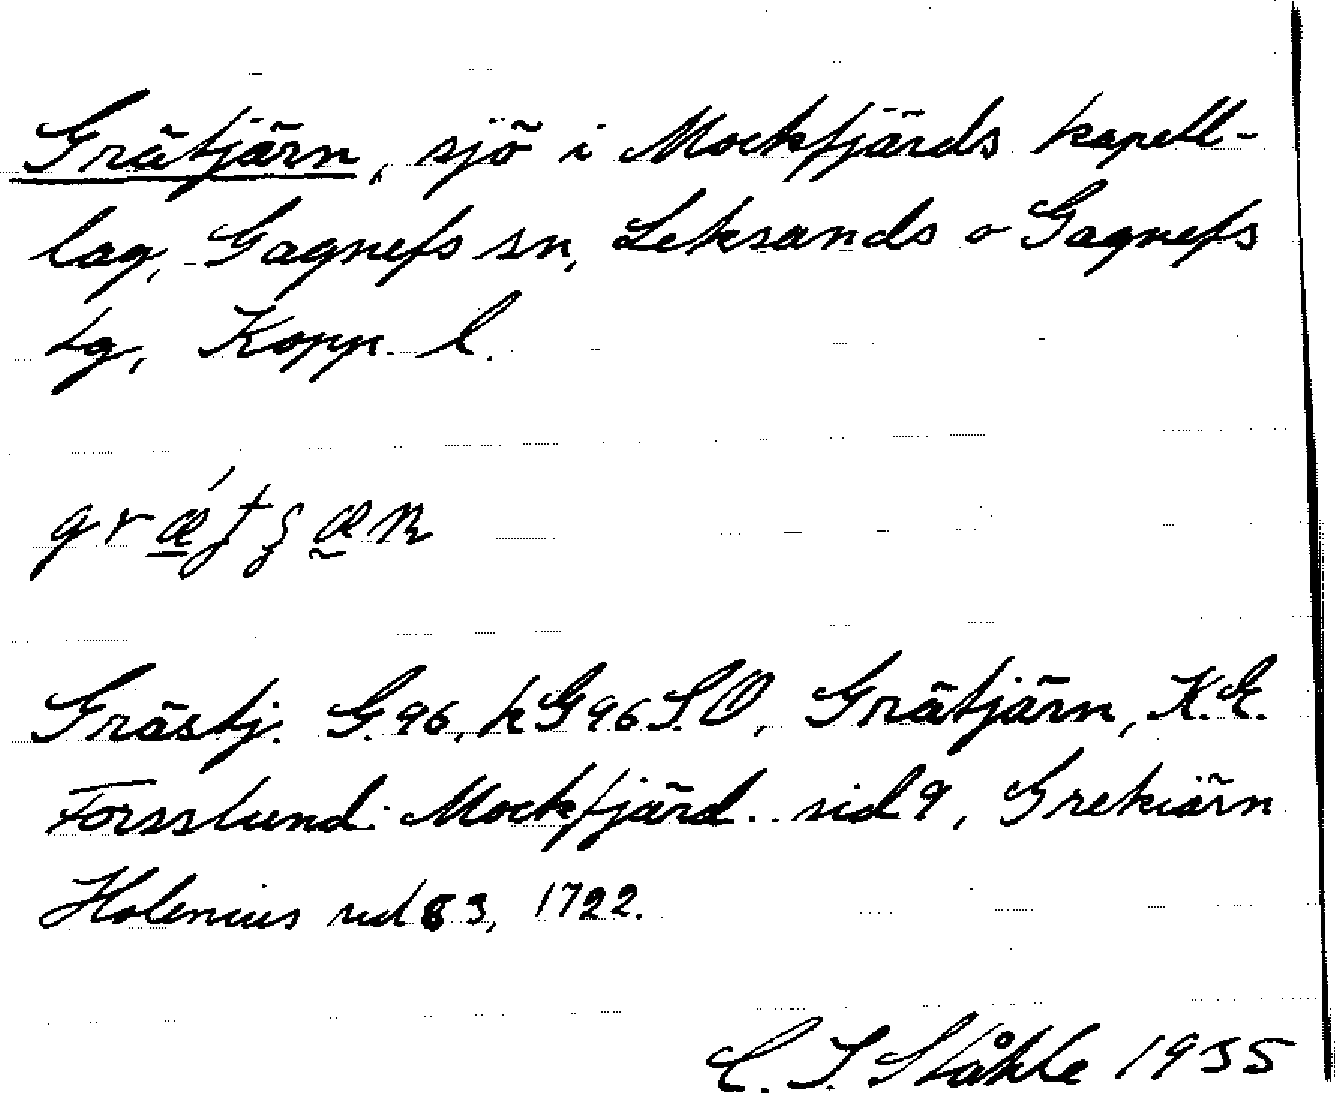 Grätjärn, sjö i Mockfjärds kapell-
lag, Gagnefs sn, Leksands o Gagnefs
tg, Kopp. l.
Grästj. G.96, hG96S.O, Grätjärn, K.E.
Forsslund. Mockfjärd. sid 9, Grekiärn
Holenius sid 63, 1722.
C. I. Ståhle 1935